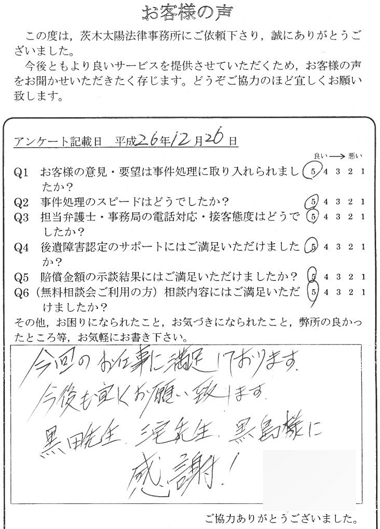 お客様の声
この度は，茨木太陽法律事務所にご依頼下さり，誠にありがとうご
ざいました。
今後ともより良いサービスを提供させていただくため，お客様の声
をお聞かせいただきたく存じます。どうぞご協力のほど宜しくお願い
致します。
アンケート記載日 平成26年12月26日
良い→悪い
Q1 お客様の意見・要望は事件処理に取り入れられまし 5 4 3 2 1
たか？
Q2 事件処理のスピードはどうでしたか？ 5 4 3 2 1
Q3 担当弁護士・事務局の電話対応・接客態度はどうで 5 4 3 2 1
したか？
Q4 後遺障害認定のサポートにはご満足いただけました 5 4 3 2 1
か？
Q5 賠償金額の示談結果にはご満足いただけましたか？ 5 4 3 2 1
Q6（無料相談会ご利用の方）相談内容にはご満足いただ 5 4 3 2 1
けましたか？
その他，お困りになられたこと，お気づきになられたこと，弊所の良かっ
たところ等，お気軽にお書き下さい。
今回のお仕事に満足しております。
今後も宜しくお願い致します。
黒田先生、三宅先生、黒島様に
感謝！
ご協力ありがとうございました。